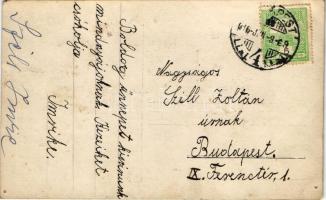 Boldog ünnepet kivánunk
mindnyájuknak Kezeiket
csókolja
Imrike.
Széll Imre
Nagyságos
Széll Zoltán
úrnak
Budapest.
IX. Ferenctér 1.